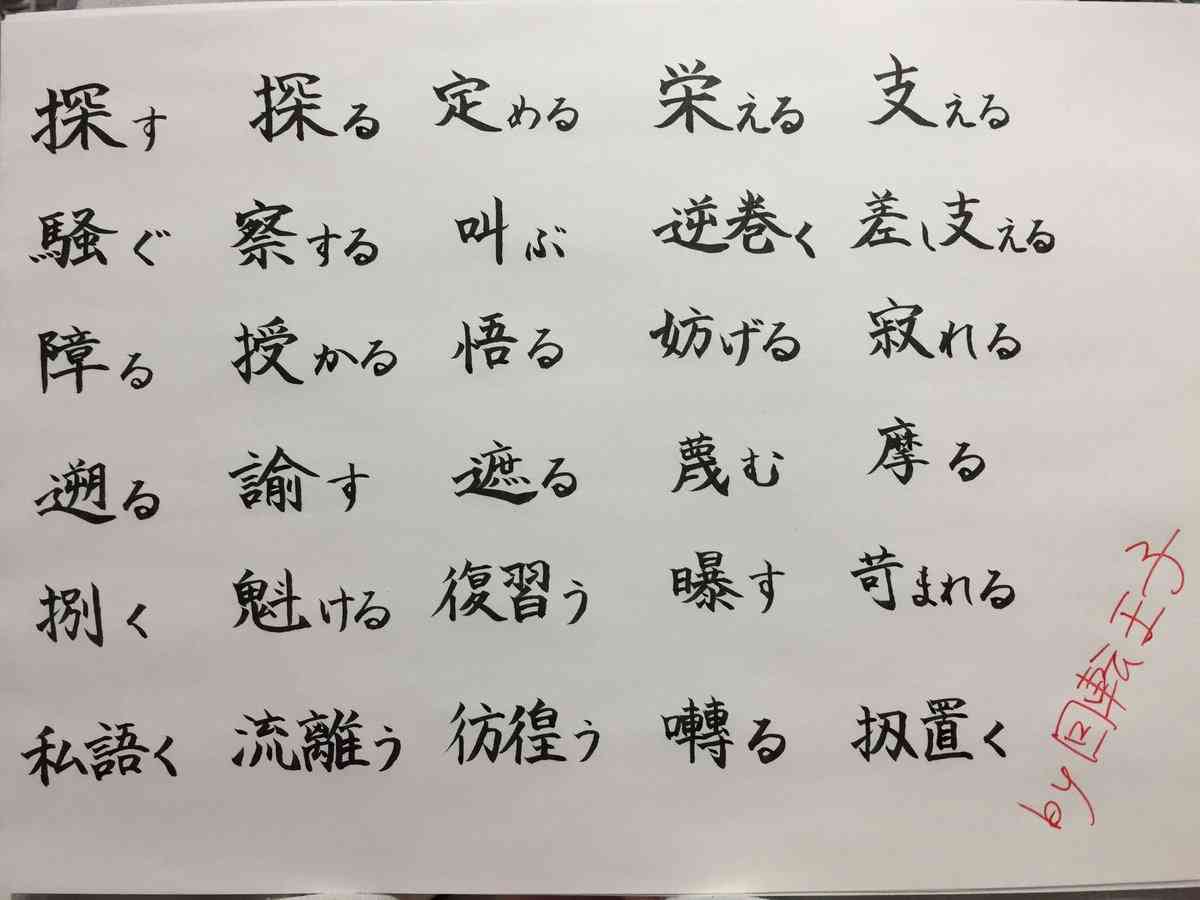 探す 探る 定める 栄える 支える
騒ぐ 察する 叫ぶ 逆巻く 差し支える
障る 授かる 悟る 妨げる 寂れる
遡る 諭す 遮る 蔑む 摩る
捌く 魁ける 復習う 曝す 苛まれる
私語く 流離う 彷徨う 囀る 扨置く
by 回転王子